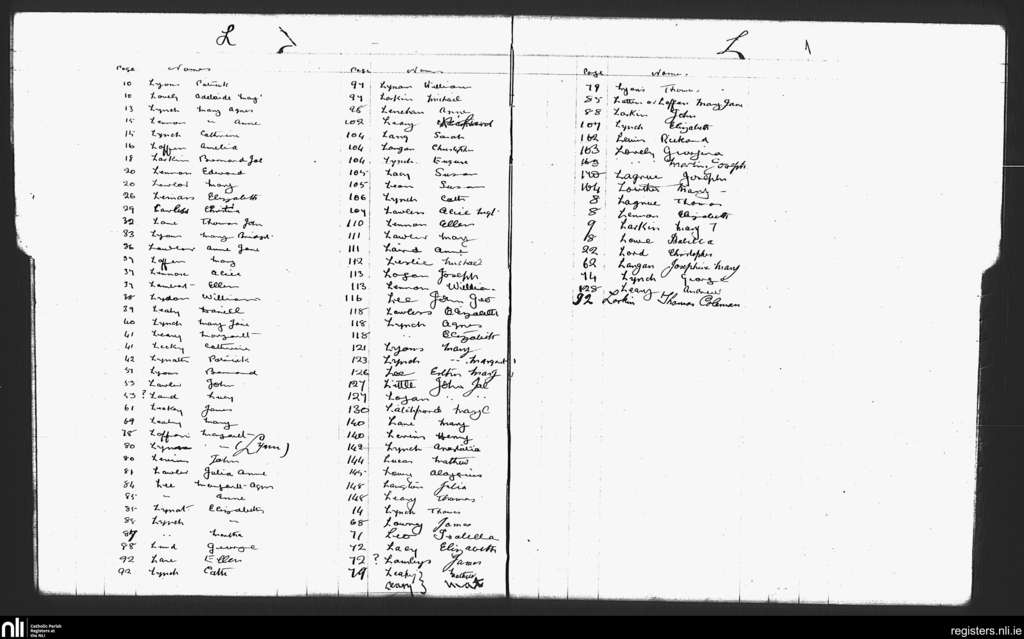 L
Page Names
10 Lyons Patrick
10 Lovely Adelaide Mary
13 Lynch Mary Agnes
15 Lennon " Anne
15 Lynch Catherine
16 Loffan Amelia
18 Larkin Bernard Jos
20 Lennon Edward
20 Lawlor Mary
26 Lemass Elizabeth
29 Lawless Christina
32 Lane Thomas John
33 Lyon Mary Bridget
36 Lawlor Anne Jane
37 Loffan Mary
37 Alice
37 Ellen
38 Lydon William
39 Leahy Daniel
40 Lynch Mary Jane
41 Leary Margaret
41 Lecky Catherine
42 Patrick
51 Lyons Bernard
53 Lawlor John
53 ? Land Lucy
61 Leahy James
69 Leahy Mary
78 Loffan Margaret
80 " (Lynn)
80 John
81 Lawlor Julia Anne
84 Lee Margaret Agnes
85 " Anne
85 Elizabeth
85 Lynch "
87 " Martha
88 Lund George
92 Lane Ellen
92 Lynch Cath
Page Names
94 Lynan William
94 Larkin Michael
96 Lenehan Anne
102 Leary Richard
104 Lang Sarah
104 Langan Christopher
104 Lynch Eugene
105 Lacy Susan
105 Lean Susan
106 Lynch Cath
109 Lawless Alice Mgt
110 Lennon Ellen
111 Lawlor Mary
111 Laird Anne
112 Leslie Michael
113 Logan Joseph
113 Lennon William
116 Lee John Geo
118 Lawless Elizabeth
118 Lynch Agnes
118 " Elizabeth
121 Lyons Mary
123 Lynch " Margaret
126 Lee Esther Mary
127 Little John Jos
127 Logan " "
130 Mary C
140 Lane Mary
140 Henry
142 Lynch Anastasia
144 Lucas Mathew
145 Aloysius
148 Langton Julia
148 Leary Thomas
14 Lynch Thomas
68 Lowry James
71 Leo Isabella
72 Lacy Elizabeth
72 ? James
79 Leahy } Mathew
Leary }
L 1
Page Name.
79 Lyons Thomas
85 Latten or Loffan Mary Jane
88 Larkin John
107 Lynch Elizabeth
162 Lewis Richard
163 Lovely Georgina
163 " Martin Joseph
Lagrue Joseph
164 Lowther Mary
8 Lagrue Thomas
8 Lennon Elizabeth
9 Larkin Mary T
18 Lowe Isabella
22 Lord Christopher
62 Langan Josephine Mary
74 Lynch George
128 Leary Andrew
92 Larkin Thomas Coleman
nli Catholic Parish Registers at the NLI
registers.nli.ie